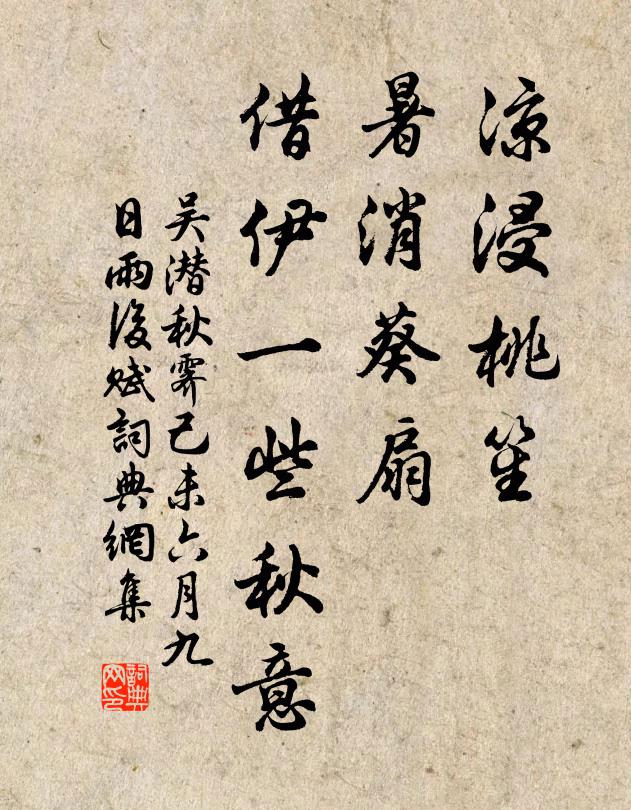 凉浸桃笙
暑消葵扇
借伊一些秋意
吴潜秋霁己未六月九
日雨後赋詞典網集
詞典网印